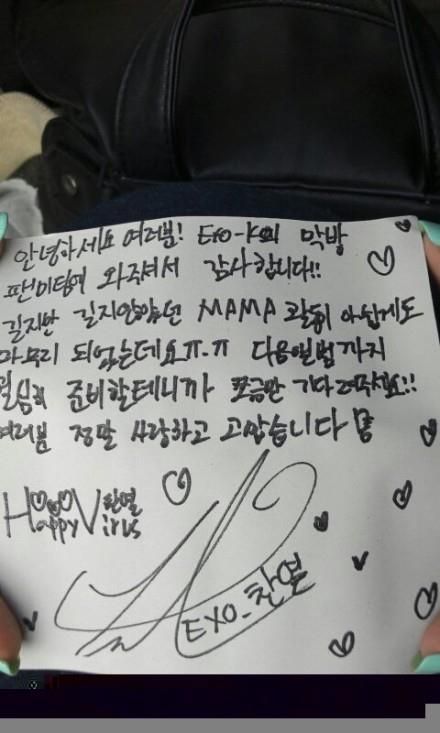 안녕하세요 여러분! EXO-K의 막방
팬미팅에 와주셔서 감사합니다!!
길지만 길지않았던 MAMA 활동이 아쉽게도
마무리 되었는데요ㅠ.ㅠ 다음앨범까지
열심히 준비할테니까 쪼금만 기다려주세요!!
여러분 정말 사랑하고 고맙습니다
Happy Virus 찬열
EXO_찬열